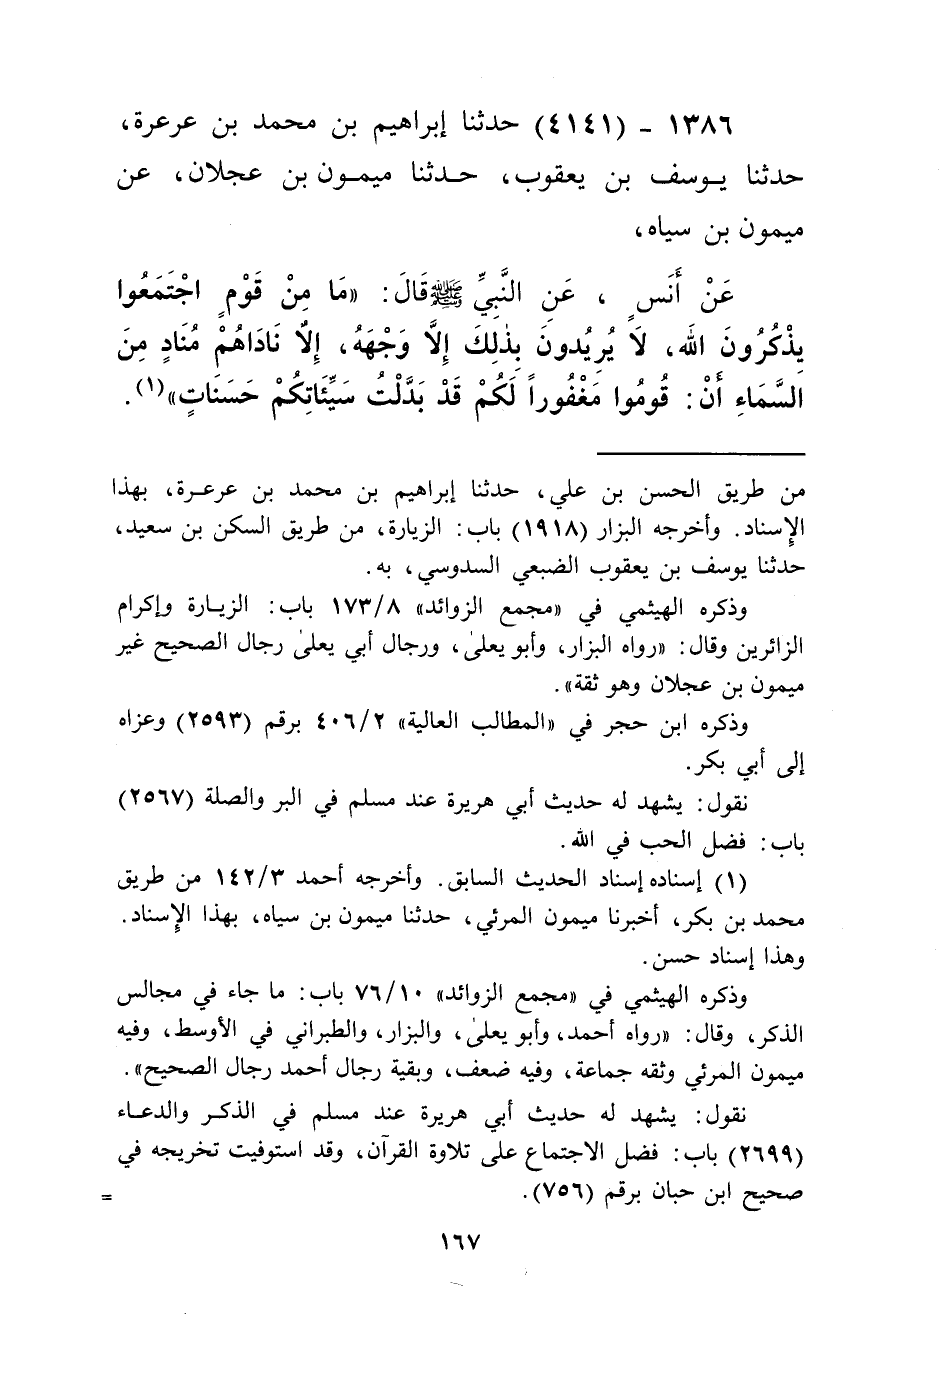 ١٣٨٦ - (٤١٤١) حدثنا إبراهيم بن محمد بن عرعرة،
حدثنا يوسف بن يعقوب، حدثنا ميمون بن عجلان، عن
ميمون بن سياه،
عَنْ أَنَسٍ ، عَنِ النَّبِيِّ ﷺ قَالَ: «مَا مِنْ قَوْمٍ اجْتَمَعُوا
يَذْكُرُونَ اللهَ، لَا يُرِيدُونَ بِذٰلِكَ إِلَّا وَجْهَهُ، إِلَّا نَادَاهُمْ مُنَادٍ مِنَ
السَّمَاءِ أَنْ: قُومُوا مَغْفُوراً لَكُمْ قَدْ بَدَّلْتُ سَيِّئَاتِكُمْ حَسَنَاتٍ»(١).
من طريق الحسن بن علي، حدثنا إبراهيم بن محمد بن عرعرة، بهذا
الإسناد. وأخرجه البزار (١٩١٨) باب: الزيارة، من طريق السكن بن سعيد،
حدثنا يوسف بن يعقوب الضبعي السدوسي، به.
وذكره الهيثمي في «مجمع الزوائد» ١٧٣/٨ باب: الزيارة وإكرام
الزائرين وقال: «رواه البزار، وأبو يعلىٰ، ورجال أبي يعلىٰ رجال الصحيح غير
ميمون بن عجلان وهو ثقة».
وذكره ابن حجر في «المطالب العالية» ٤٠٦/٢ برقم (٢٥٩٣) وعزاه
إلى أبي بكر.
نقول: يشهد له حديث أبي هريرة عند مسلم في البر والصلة (٢٥٦٧)
باب: فضل الحب في الله.
(١) إسناده إسناد الحديث السابق. وأخرجه أحمد ١٤٢/٣ من طريق
محمد بن بكر، أخبرنا ميمون المرئي، حدثنا ميمون بن سياه، بهذا الإسناد.
وهذا إسناد حسن.
وذكره الهيثمي في «مجمع الزوائد» ٧٦/١٠ باب: ما جاء في مجالس
الذكر، وقال: «رواه أحمد، وأبو يعلىٰ، والبزار، والطبراني في الأوسط، وفيه
ميمون المرئي وثقه جماعة، وفيه ضعف، وبقية رجال أحمد رجال الصحيح».
نقول: يشهد له حديث أبي هريرة عند مسلم في الذكر والدعاء
(٢٦٩٩) باب: فضل الاجتماع على تلاوة القرآن، وقد استوفيت تخريجه في
صحيح ابن حبان برقم (٧٥٦). =
١٦٧